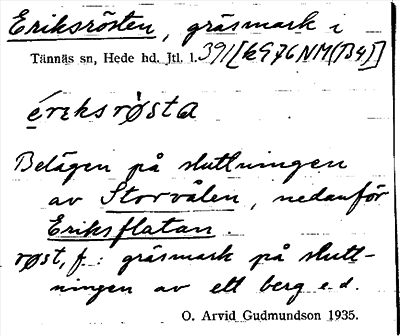 Eriksrösten, gräsmark i
Tännäs sn, Hede hd. Jtl. l. 391[k976NM(B4)]
éreksrøsta
Belägen på sluttningen
av Storvålen, nedanför
Eriksflatan.
røst, f.: gräsmark på slutt-
ningen av ett berg e.d.
O. Arvid Gudmundson 1935.